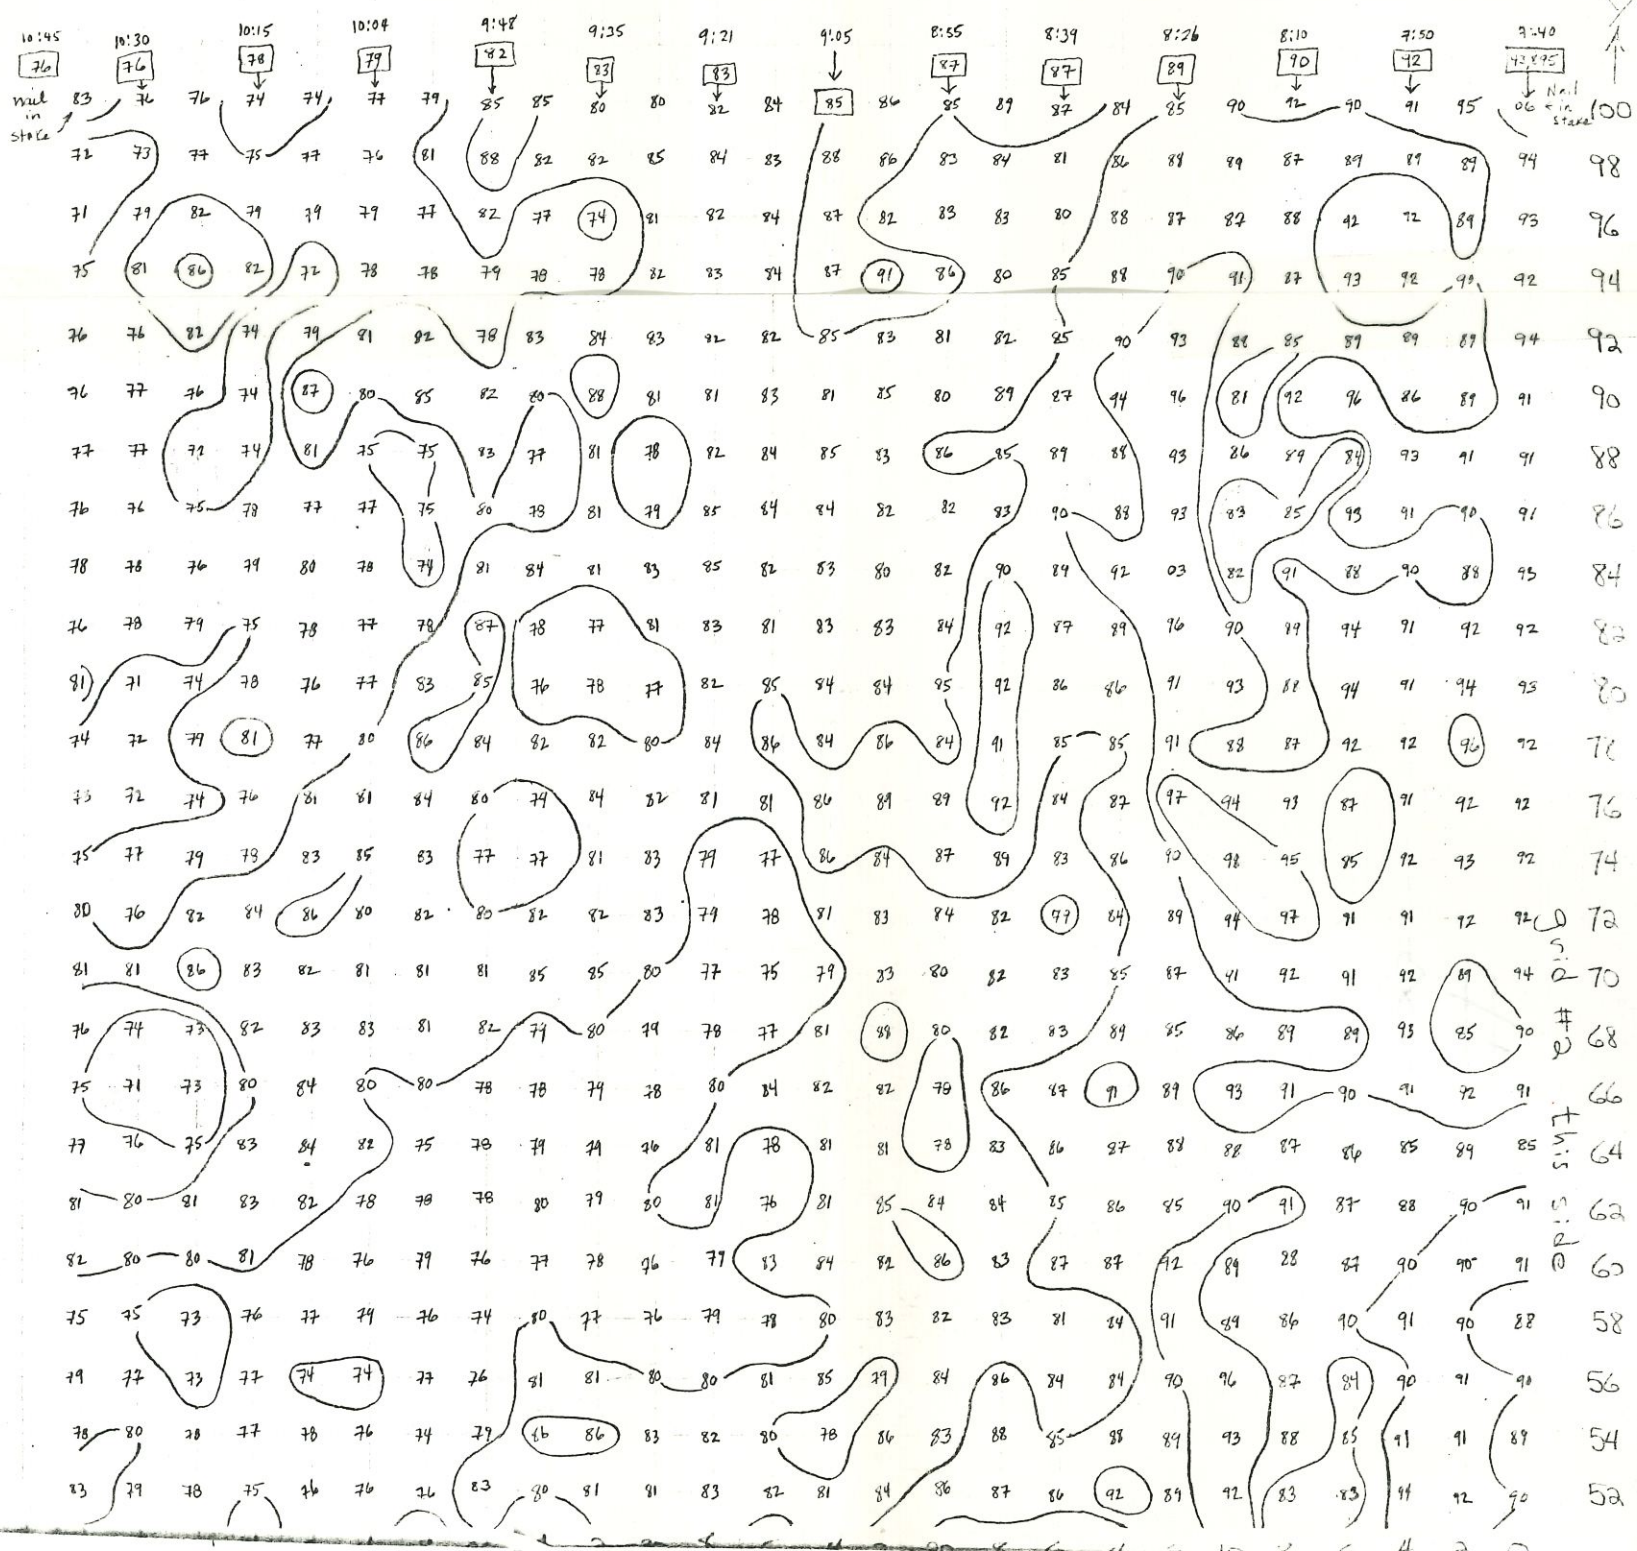 10:45 10:30 10:15 10:04 9:48 9:35 9:21 9:05 8:55 8:39 8:26 8:10 7:50 7:40
76 76 78 79 82 83 83 87 87 89 90 92
nail in stake 83 76 76 74 74 77 79 85 85 80 80 82 84 85 86 85 89 87 84 85 90 92 90 91 95 06 Nail in stake 100
72 73 77 75 77 76 81 88 82 82 85 84 83 88 86 83 84 81 86 88 89 87 89 89 89 94 98
71 79 82 79 79 79 77 82 77 74 81 82 84 87 82 83 83 80 88 87 87 88 92 92 89 93 96
75 81 86 82 72 78 78 79 78 78 82 83 84 87 91 86 80 85 88 90 91 87 93 92 90 92 94
76 76 82 74 79 81 82 78 83 84 83 82 82 85 83 81 82 85 90 93 88 85 89 89 89 94 92
76 77 76 74 87 80 85 82 80 88 81 81 83 81 85 80 89 87 94 96 81 92 96 86 89 91 90
77 77 72 74 81 75 75 83 77 81 78 82 84 85 83 86 85 89 88 93 86 89 84 93 91 91 88
76 76 75 78 77 77 75 80 78 81 79 85 84 84 82 82 83 90 88 93 83 85 93 91 90 91 86
78 78 76 79 80 78 74 81 84 81 83 85 82 83 80 82 90 89 92 03 82 91 88 90 88 93 84
76 78 79 75 78 77 78 87 78 77 81 83 81 83 83 84 92 87 89 96 90 89 94 91 92 92 82
81 71 74 78 76 77 83 85 76 78 77 82 85 84 84 85 92 86 86 91 93 88 94 91 94 93 80
74 72 79 81 77 80 86 84 82 82 80 84 86 84 86 84 91 85 85 91 88 87 92 92 96 92 78
73 72 74 76 81 81 84 80 79 84 82 81 81 86 89 89 92 84 87 97 94 93 87 91 92 92 76
75 77 79 78 83 85 83 77 77 81 83 79 77 86 84 87 89 83 86 90 98 95 85 92 93 92 74
80 76 82 84 86 80 82 80 82 82 83 79 78 81 83 84 82 77 84 89 94 97 91 91 92 92 72
81 81 86 83 82 81 81 81 85 85 80 77 75 79 83 80 82 83 85 87 91 92 91 92 89 94 70
76 74 73 82 83 83 81 82 79 80 79 78 77 81 88 80 82 83 89 85 86 89 89 93 85 90 68
75 71 73 80 84 80 80 78 78 79 78 80 84 82 82 78 86 87 91 89 93 91 90 91 92 91 66
77 76 75 83 84 82 75 78 79 79 76 81 78 81 81 78 83 86 87 88 88 87 86 85 89 85 64
81 80 81 83 82 78 78 78 80 79 80 81 76 81 85 84 84 85 86 85 90 91 87 88 90 91 62
82 80 80 81 78 76 79 76 77 78 76 79 83 84 82 86 83 87 87 92 89 88 87 90 90 91 60
75 75 73 76 77 79 76 74 80 77 76 79 78 80 83 82 83 81 84 91 89 86 90 91 90 88 58
79 77 73 77 74 74 77 76 81 81 80 80 81 85 79 84 86 84 84 90 96 87 84 90 91 90 56
78 80 78 77 78 76 74 79 86 86 83 82 80 78 86 83 88 85 88 89 93 88 85 91 91 89 54
83 79 78 75 76 76 76 83 80 81 81 83 82 81 84 86 87 86 92 89 92 83 83 94 92 90 52
Grid #2 this side